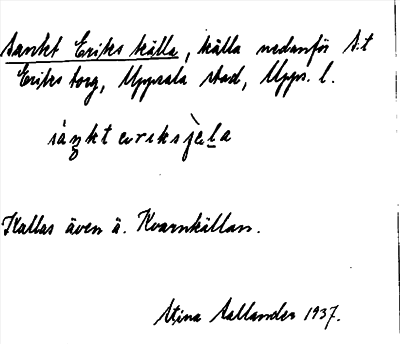 Sankt Eriks källa, källa nedanför S:t
Eriks torg, Uppsala stad, Upps. l.
Kallas även ä. Kvarnkällan.
Stina Sallander 1937.